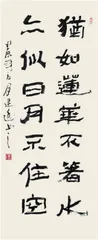 猶如蓮華不著水
亦似日月不住空